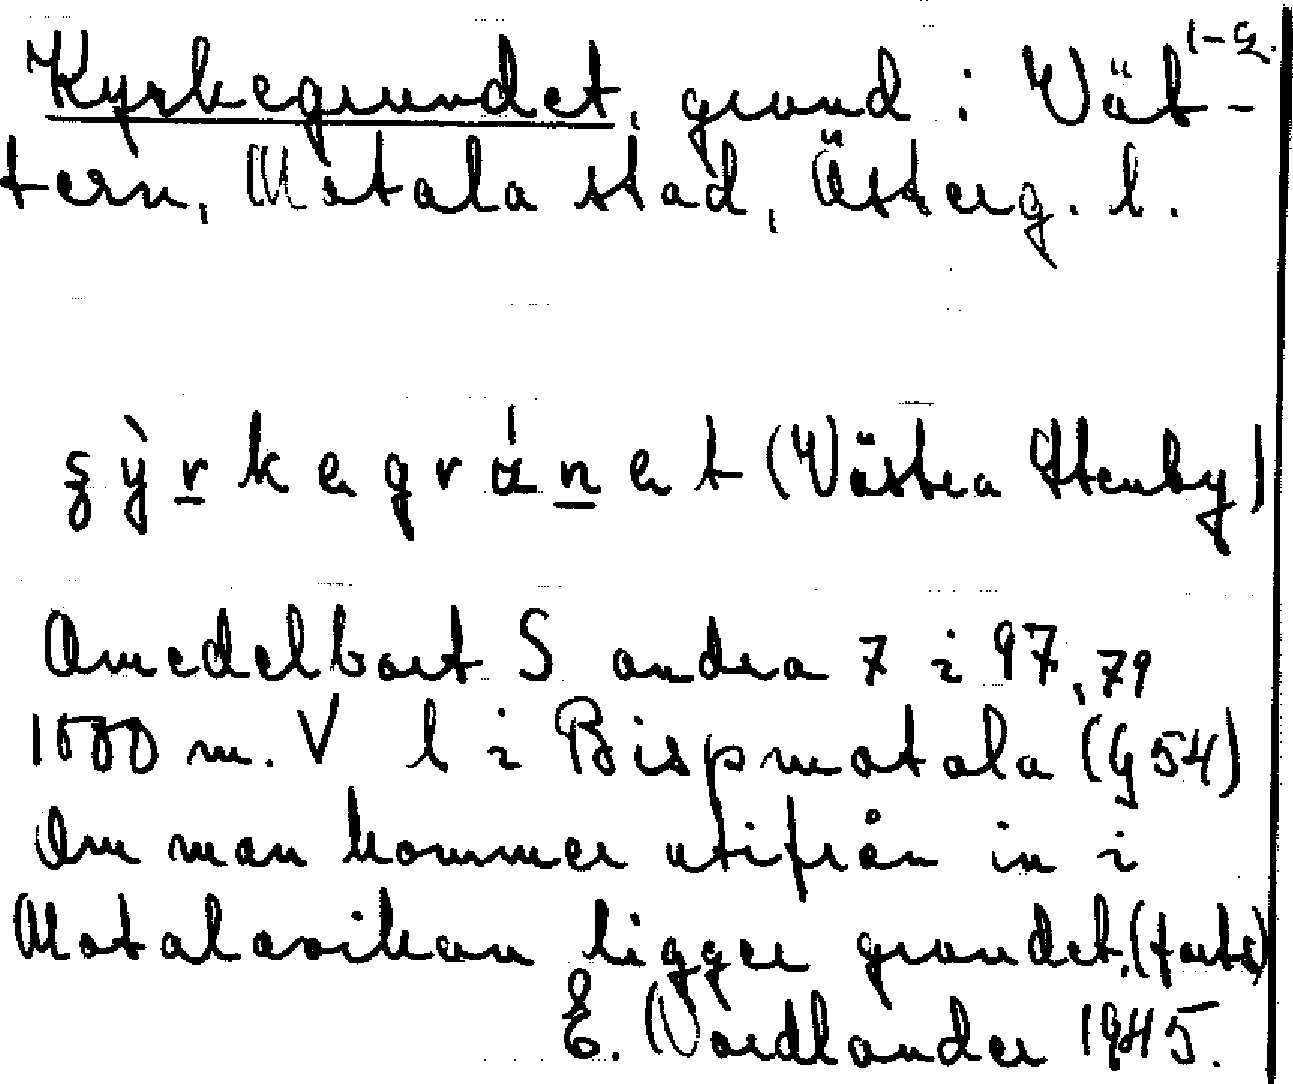 1-2.
Kyrkegrundet, grund i Vät-
tern, Motala stad, Österg. l.
(Västra Stenby)
Omedelbart S andra 7 i 97,79
1500 m. V l i Bispmotala (G 54)
Om man kommer utifrån in i
Motalaviken ligger grundet. (forts)
E. Nordlander 1945.